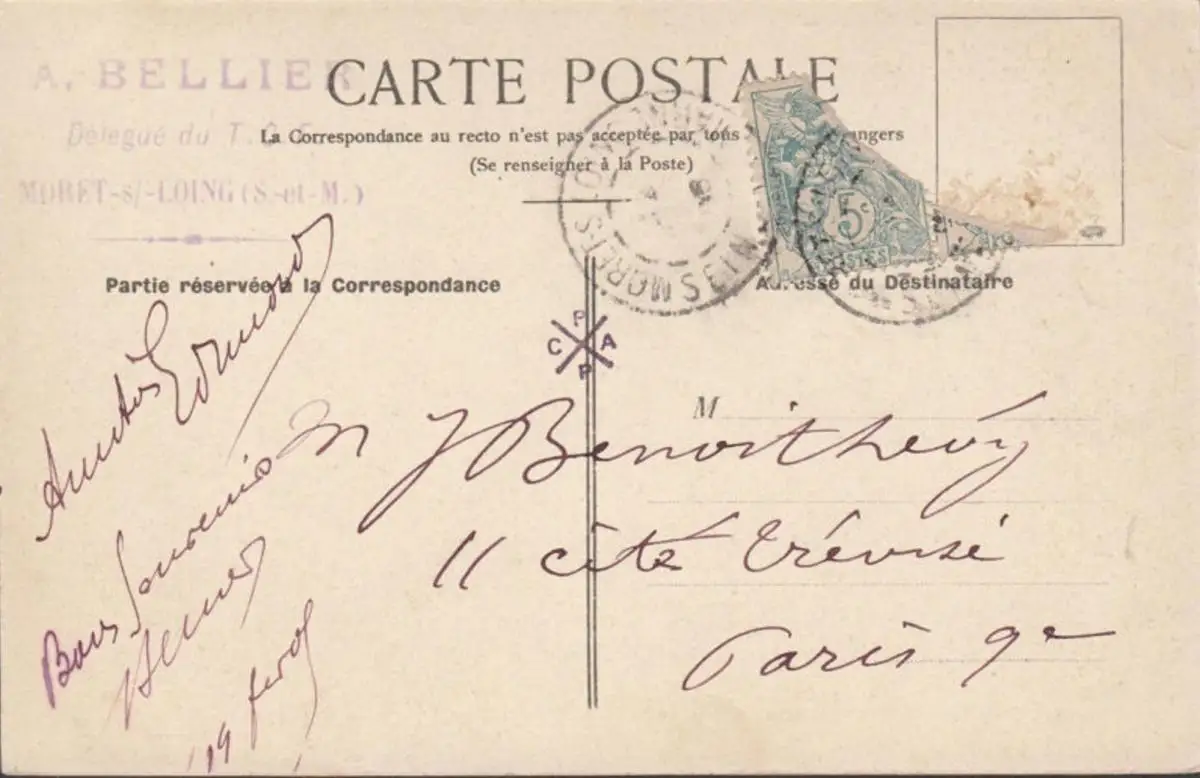 A. BELLIER
Délégué du T.C.F.
MORET-s/-LOING (S.-et-M.)
CARTE POSTALE
La Correspondance au recto n'est pas acceptée par tous angers
(Se renseigner à la Poste)
5c
POSTES
Partie réservée à la Correspondance
Adresse du Destinataire
P
C A
P
M
M J Benoithévy
11 cité Trévise
Paris 9e
Amitiés Edmond
Bons Souvenirs
19